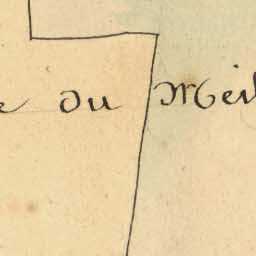 e du Meil